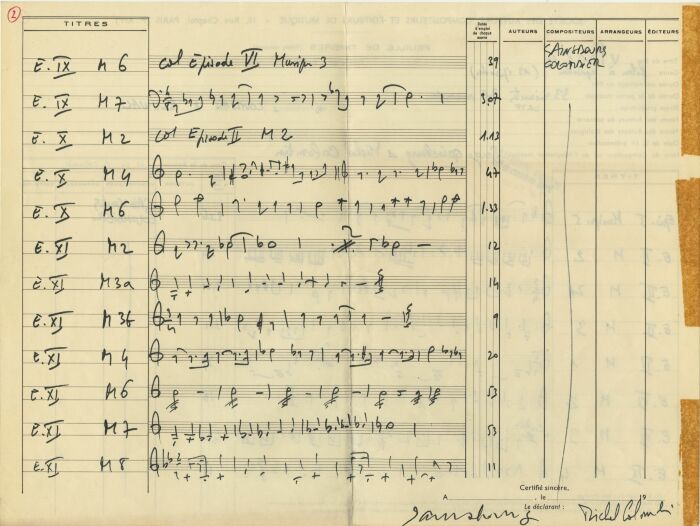 2
TITRES
Durée d'emploi de chaque œuvre
AUTEURS COMPOSITEURS ARRANGEURS ÉDITEURS
GAINSBOURG
COLOMBIER
E. IX M 6 col Episode VI Musique 3 39
E. IX M 7 3,07
E. X M 2 col Episode II M 2 1.13
E. X M 4 47
E. X M 6 1.33
E. XI M 2 12
E. XI M 3a 14
E. XI M 3b 9
E. XI M 4 20
E. XI M 6 53
E. XI M 7 53
E. XI M 8 11
Certifié sincère,
A le 19
Le déclarant :
Gainsbourg Michel Colombier